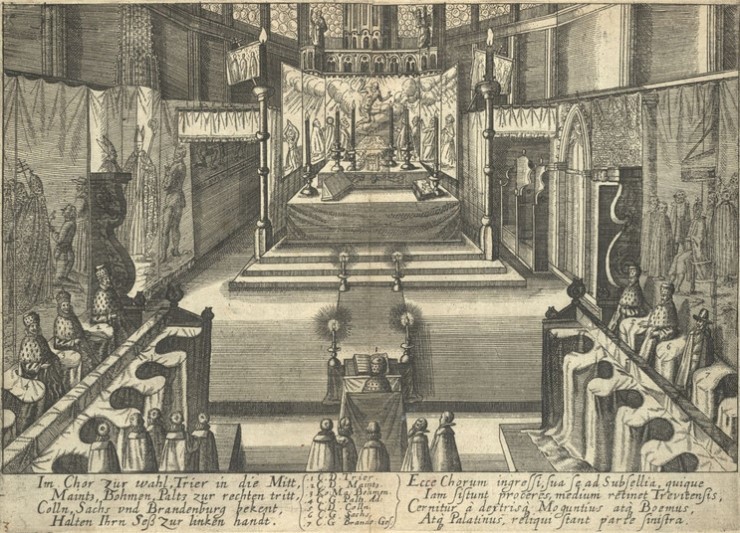 Im Chor zur wahl, Trier in die Mitt,
Maintz, Böhmen, Paltz zur rechten tritt,
Cölln, Sachs vnd Brandenburg bekent,
Halten Ihrn Seß zur linken handt.
1 C. D. Trier.
2 C. D. Maintz.
3 K. M. Böhmen.
4 Paltz Ad.
5 C. D. Cölln.
6 C. G. Sachs.
7 C. G. Brande Ges.
Ecce Chorum ingressi, sua sq ad Subsellia, quique
Iam sistunt proceres, medium retinet Trevirensis,
Cernitur à dextrisq Moguntius atq Boemus,
Atq Palatinus, reliqui stant parte sinistra.